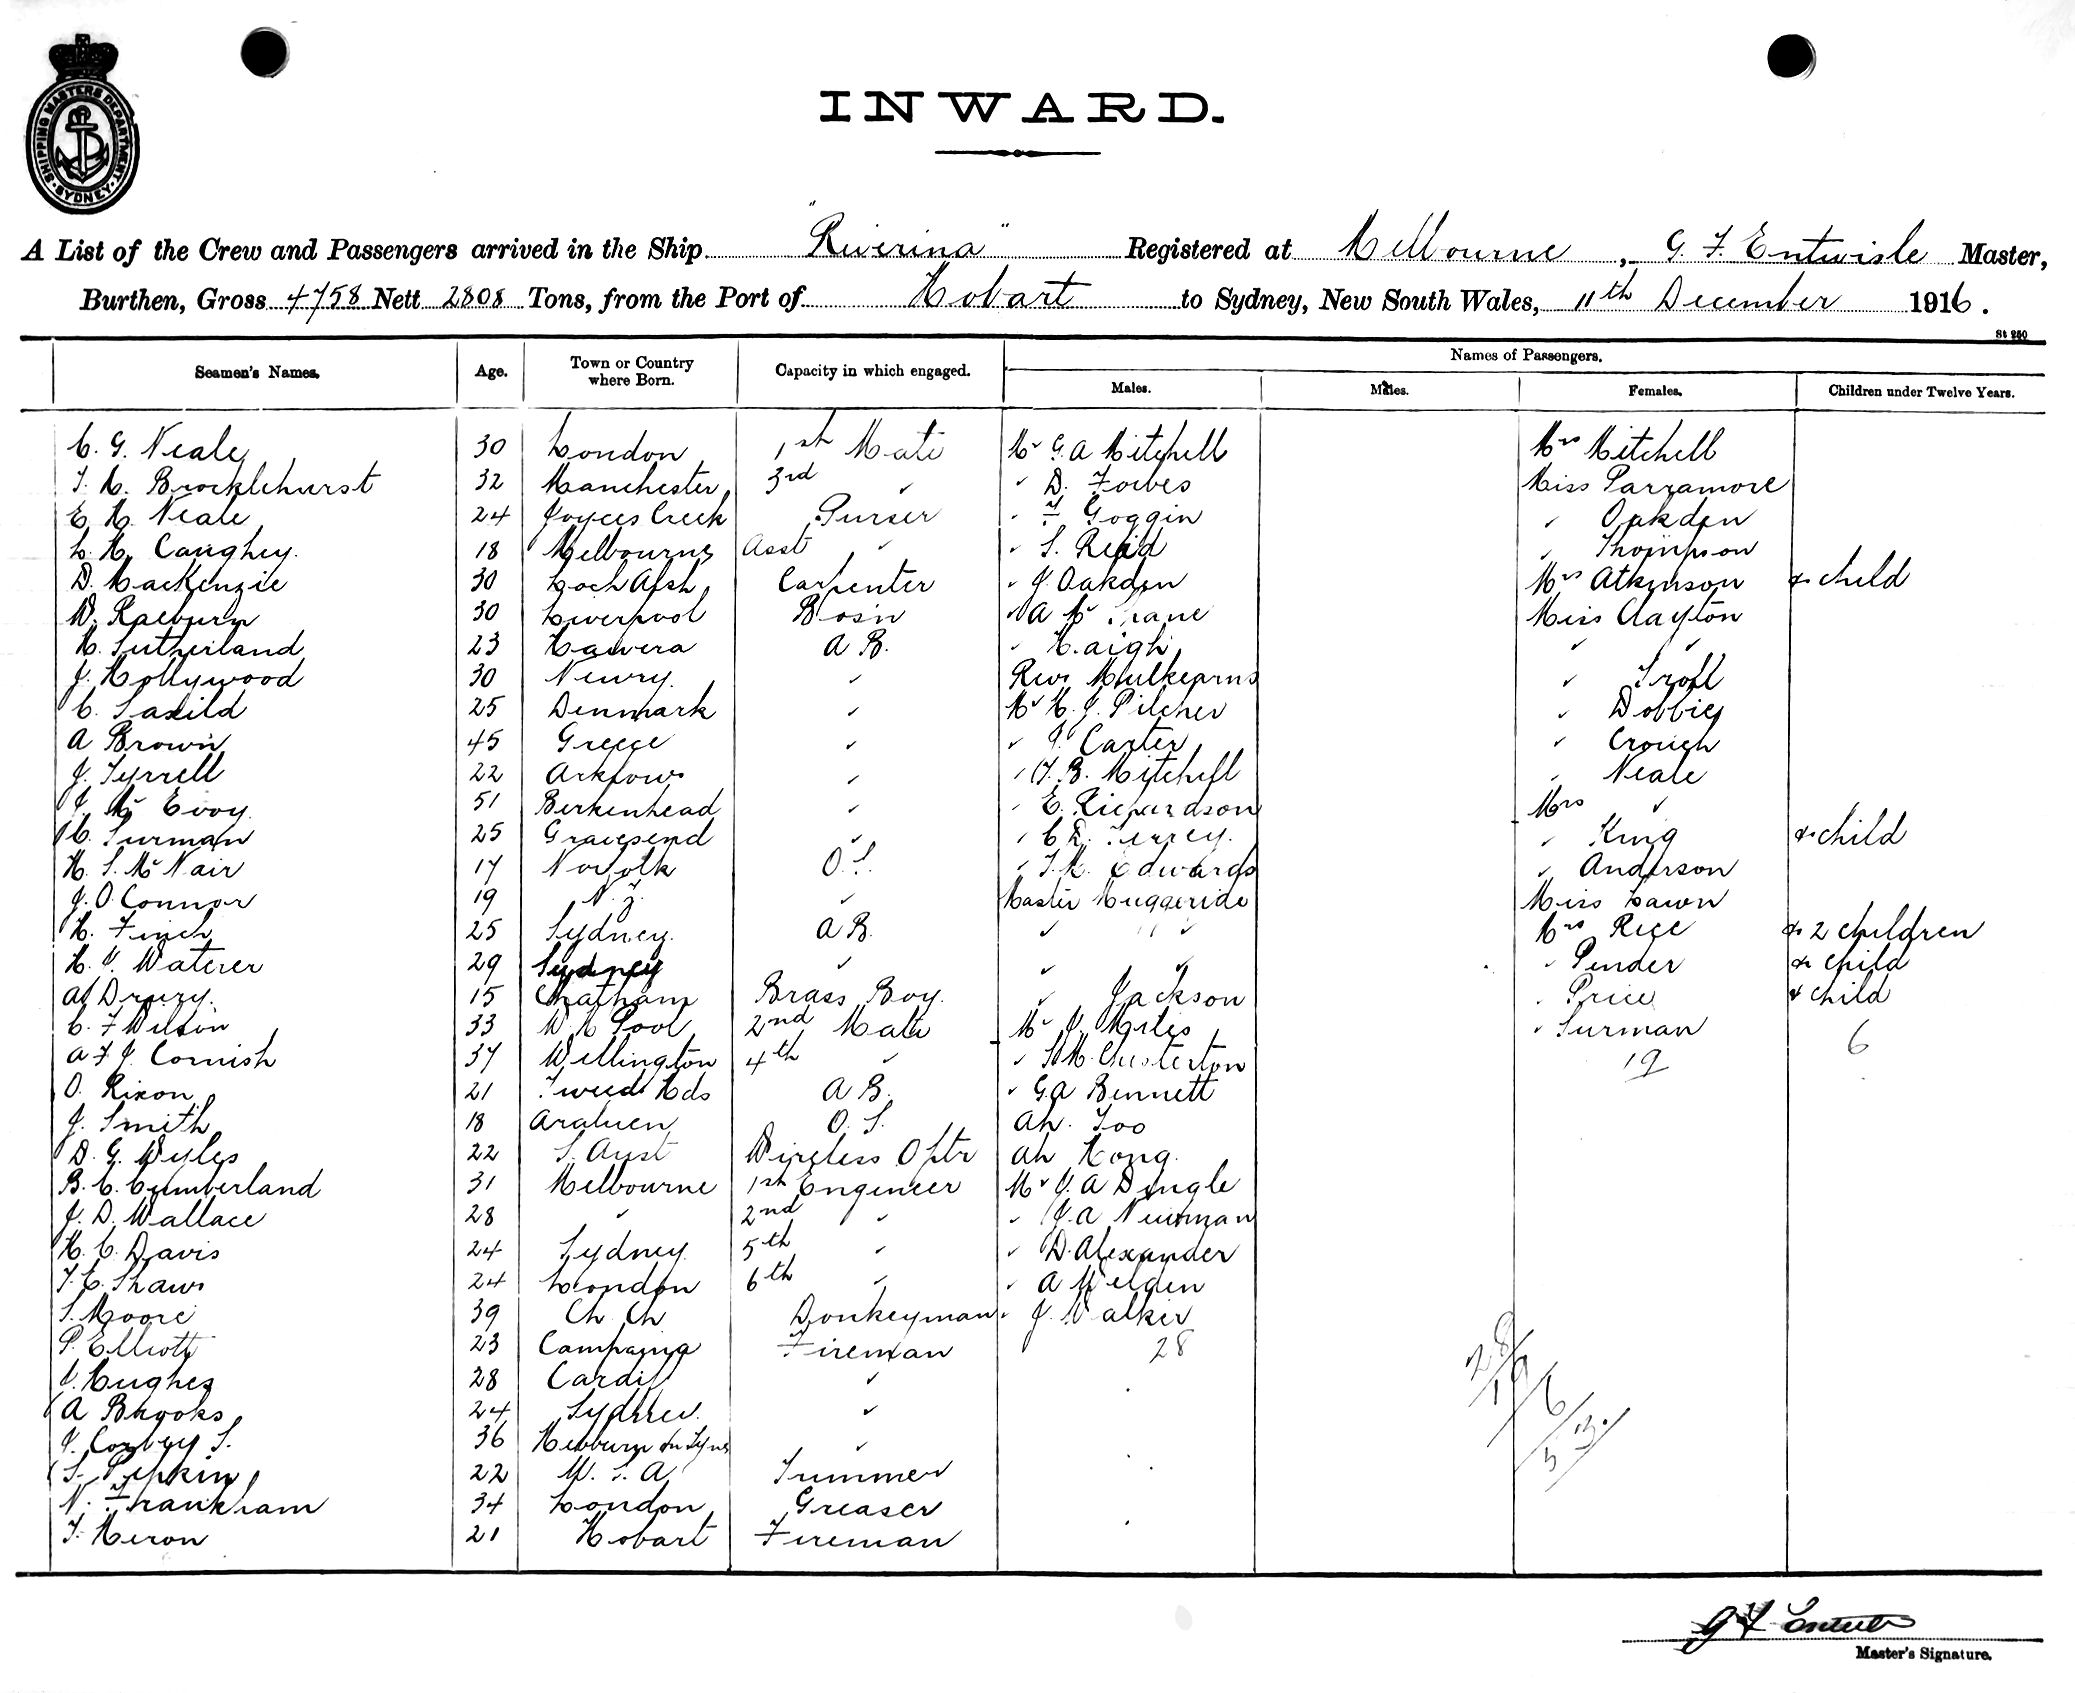 SHIPPING MASTERS DEPARTMENT SYDNEY
INWARD.
A List of the Crew and Passengers arrived in the Ship "Riverina" Registered at Melbourne, G. F. Entwisle Master,
Burthen, Gross 4758 Nett 2808 Tons, from the Port of Hobart to Sydney, New South Wales, 11th December 1916.
St 250
Seamen's Names. Age. Town or Country where Born. Capacity in which engaged. Names of Passengers.
Males. Males. Females. Children under Twelve Years.
C. G. Neale 30 London 1st Mate Mr G. A Mitchell Mrs Mitchell
T. H. Brocklehurst 32 Manchester 3rd " " D. Forbes Miss Parramore
E. H. Neale 24 Joyces Creek Purser " F. Goggin " Oakden
L. H. Caughey. 18 Melbourne Asst " " S. Reid " Thompson
D. MacKenzie 30 Loch Alsh Carpenter " J. Oakden Mrs Atkinson & child
W. Raeburn 30 Liverpool Bosn " A Mc Crane Miss Clayton
H. Sutherland 23 Hawera A B. " Haigh " "
J. Hollywood 30 Newry. " Rev. Mulkearns " Troll
C. Saxild 25 Denmark " Mr H. J. Pilcher " Dobbie
A Brown 45 Greece " " J. Carter " Crouch
J. Tyrrell 22 Arklow " " T. B. Mitchell " Neale
J. Mc Evoy. 51 Birkenhead " " E. Richardson Mrs "
C. Surman 25 Gravesend " " C. D. Terrey. " King & child
H. S. Mc Nair 17 Norfolk O.S. " T. H. Edwards " Anderson
J. O. Connor 19 N. Z. " Master Muggeride Miss Lawn
H. Finch 25 Sydney. A B. " " Mrs Rice & 2 children
H. J. Waterer 29 Sydney " " " " Pender & child
A. Drury. 15 Chatham Brass Boy. " Jackson " Price & child
C. F Wilson 33 W. H Pool 2nd Mate Mr J. Miles " Surman
A F J. Cornish 37 Wellington 4th " " H. Chesterton 19 6
O. Rixon 21 Tweed Hds A B. " G. A Bennett
J. Smith 18 Araluen O. S. Ah. Foo
D. G. Wyles 22 S. Aust Wireless Optr Ah Hong.
B. C. Cumberland 31 Melbourne 1st Engineer Mr J. A Dingle
J. D. Wallace 28 " 2nd " " J. A Newman
H. C. Davis 24 Sydney. 5th " " D. Alexander
T. E. Shaw 24 London 6th " " A Melden
S. Moore 39 Ch. Ch Donkeyman " J. Walker
P. Elliott 23 Campania Fireman 28
J. Hughes 28 Cardiff "
A Brooks 24 Sydney. "
J. Coxley S. 36 Hebburn on Tyne "
S. Pipkin 22 W. S. A. Trimmer
N. Frankham 34 London Greaser
T. Heron 21 Hobart Fireman
28/19/6
53
G F Entwisle
Master's Signature.